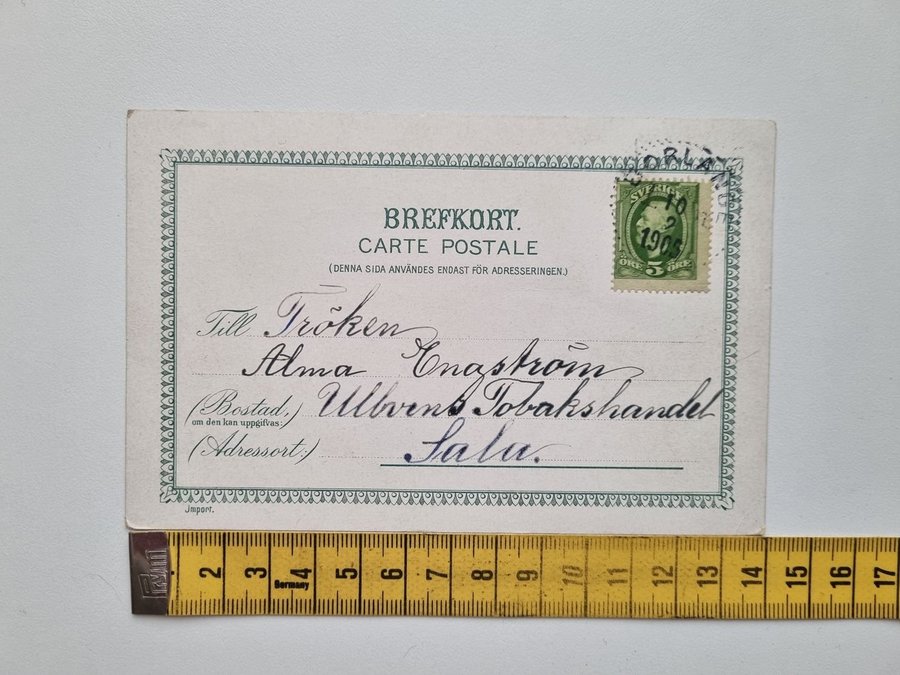 BREFKORT.
CARTE POSTALE
(DENNA SIDA ANVÄNDES ENDAST FÖR ADRESSERINGEN.)
BORLÄNGE
10
2
1905
SVERIGE
ÖRE 5 ÖRE
Till Fröken
Alma Engström
(Bostad,) Ulbvens Tobakshandel
om den kan uppgifvas:
(Adressort:) Sala.
Import.
2 3 4 5 6 7 8 9 10 11 12 13 14 15 16 17
Germany